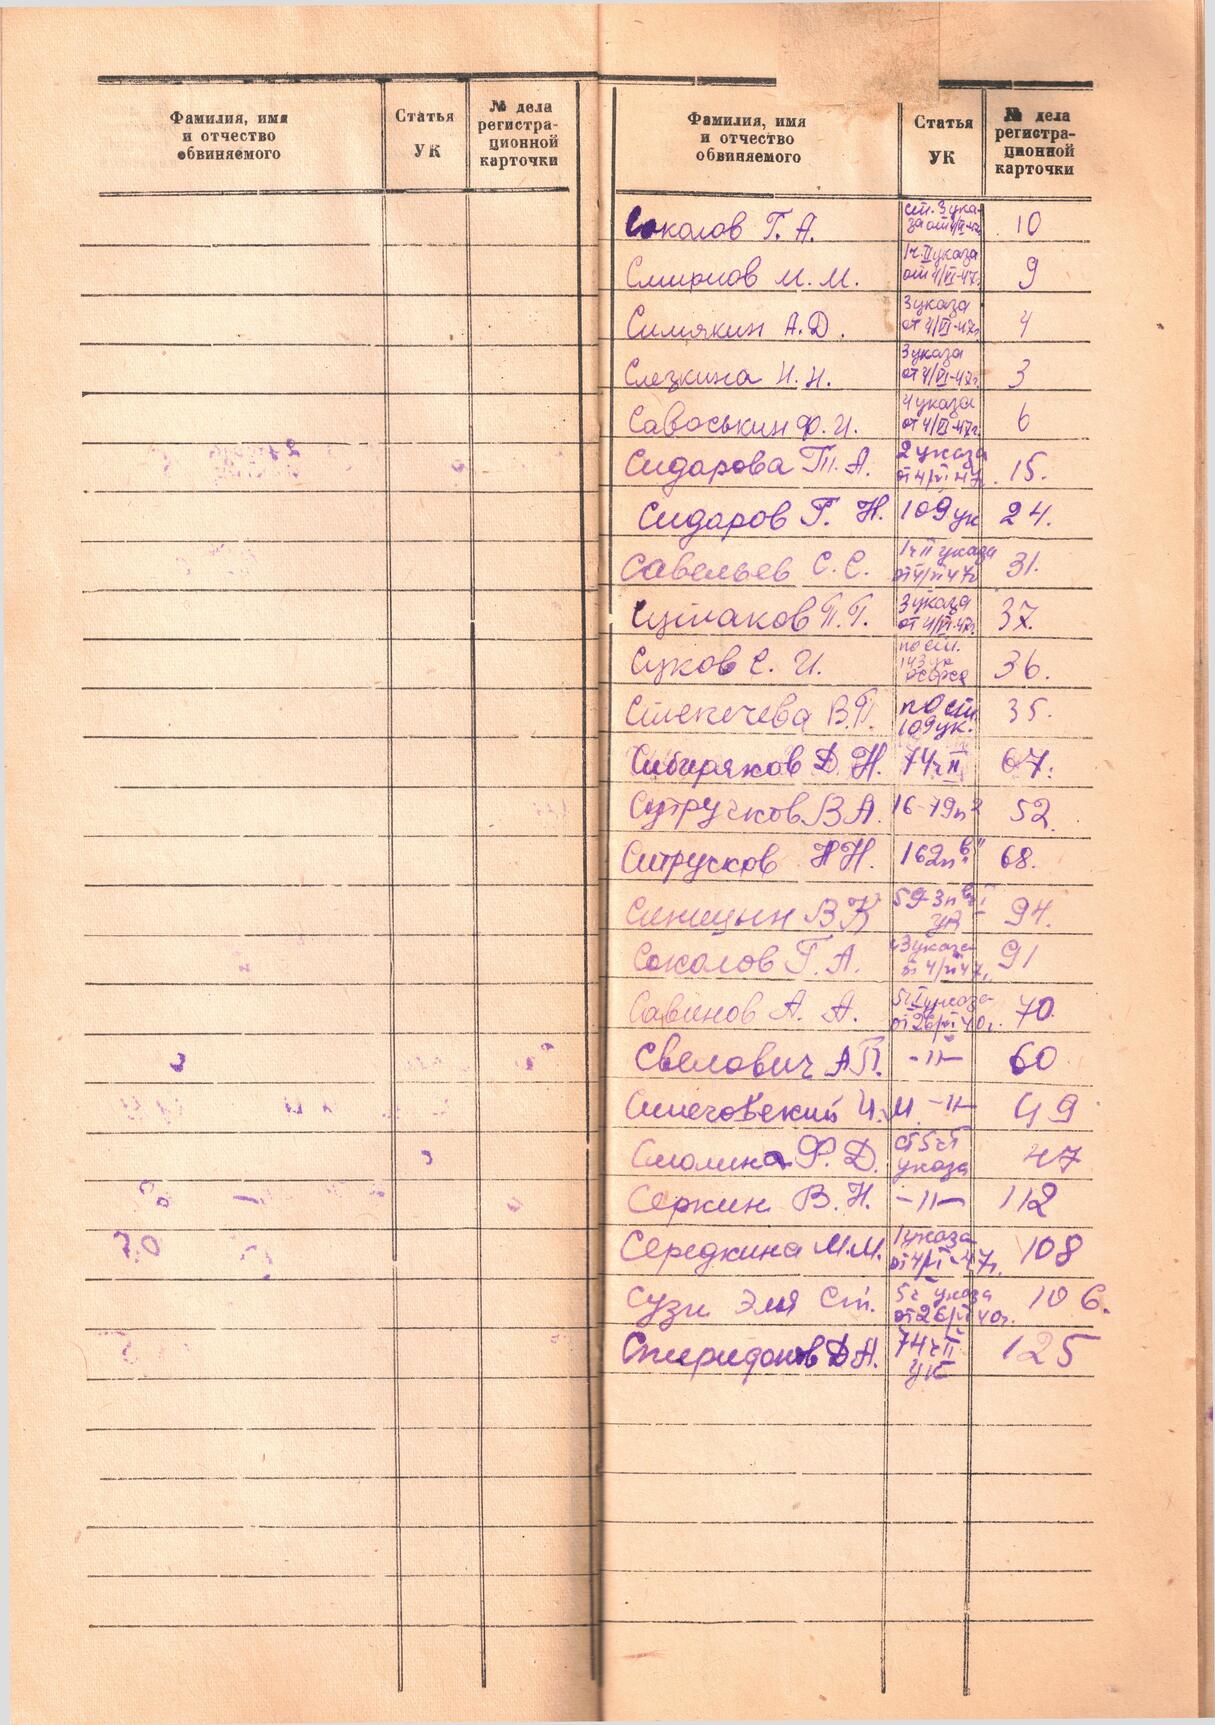 Фамилия, имя
и отчество
обвиняемого
Статья
УК
№ дела
регистра-
ционной
карточки
Фамилия, имя
и отчество
обвиняемого
Статья
УК
№ дела
регистра-
ционной
карточки
Соколов Г. А. ст. 3 ука-
за от 4/VI-47г. 10
Смирнов М. М. 1ч. II указа
от 4/VI-47г. 9
Симякин А. Д. 3 указа
от 4/VI-47г. 4
Слезкина Н. Н. 3 указа
от 4/VI-47г. 3
Савоськин Ф. И. 4 указа
от 4/VI-47г. 6
Сидарова Т. А. 2 указа
от 4/VI 47г. 15.
Сидаров Г. Н. 109 ук 24.
Савельев С. С. 1ч II указа
от 4/VI 47г 31.
П. Г. 3 указа
от 4/VI-47г. 37.
Суков С. И. по ст.
143 ук
РСФСР 36.
В. П. по ст.
109 ук. 35.
Сибиряков Д. Н. 74 ч II 67.
Супручков В А. 16-79 п 2 52.
Н Н. 162 п "в" 68.
Синицын В К 59-3 п
94.
Соколов Г. А. 3 указа
от 4/VI 47г. 91
Савинов А. А. 5 ч II указа
от 26/VI 40г. 70.
Свелович А П. -II- 60.
И. М. -II- 49
Смолина Ф. Д. ст 5 ч
указа 47
Серкин В. Н. -II- 112
Середкина М. М. 1 указа
от 4/VI-47г. 108
Сузи Эля Ст. 5 ч указа
от 26/VI 40г. 106.
Спиридонов Д А. 74 ч II
УК 125